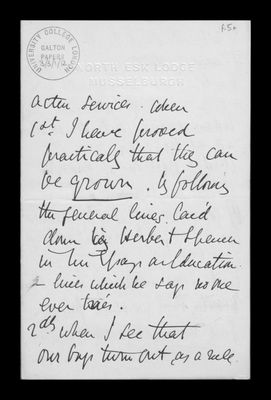 f.5r
UNIVERSITY COLLEGE LONDON
GALTON
PAPERS
NORTH ESK LODGE
MUSSELBURGH
services. when
1st. I have proved
practically that they can
be grown. by following
the general lines laid
down by Herbert Spencer
in his Essays on Education
- lines which he says no one
ever tries.
2dly when I see that
our boys turn out, as a rule